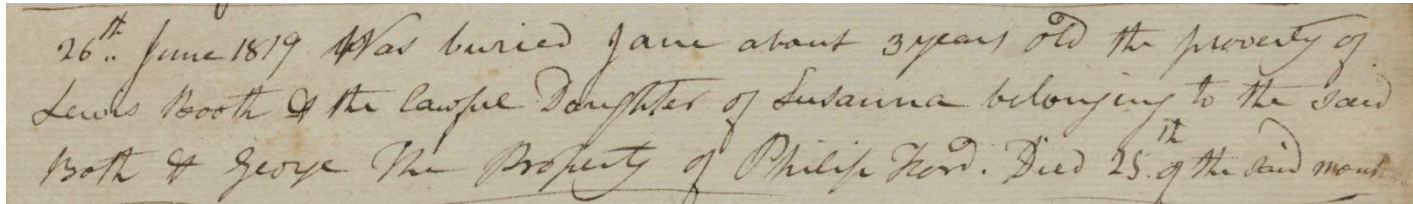 26th. June 1819 Was buried Jane about 3 years old the property of
Lewis Booth & the lawful Daughter of Susanna belonging to the said
Both & George The Property of Philip Ford. Died 25th of the said month